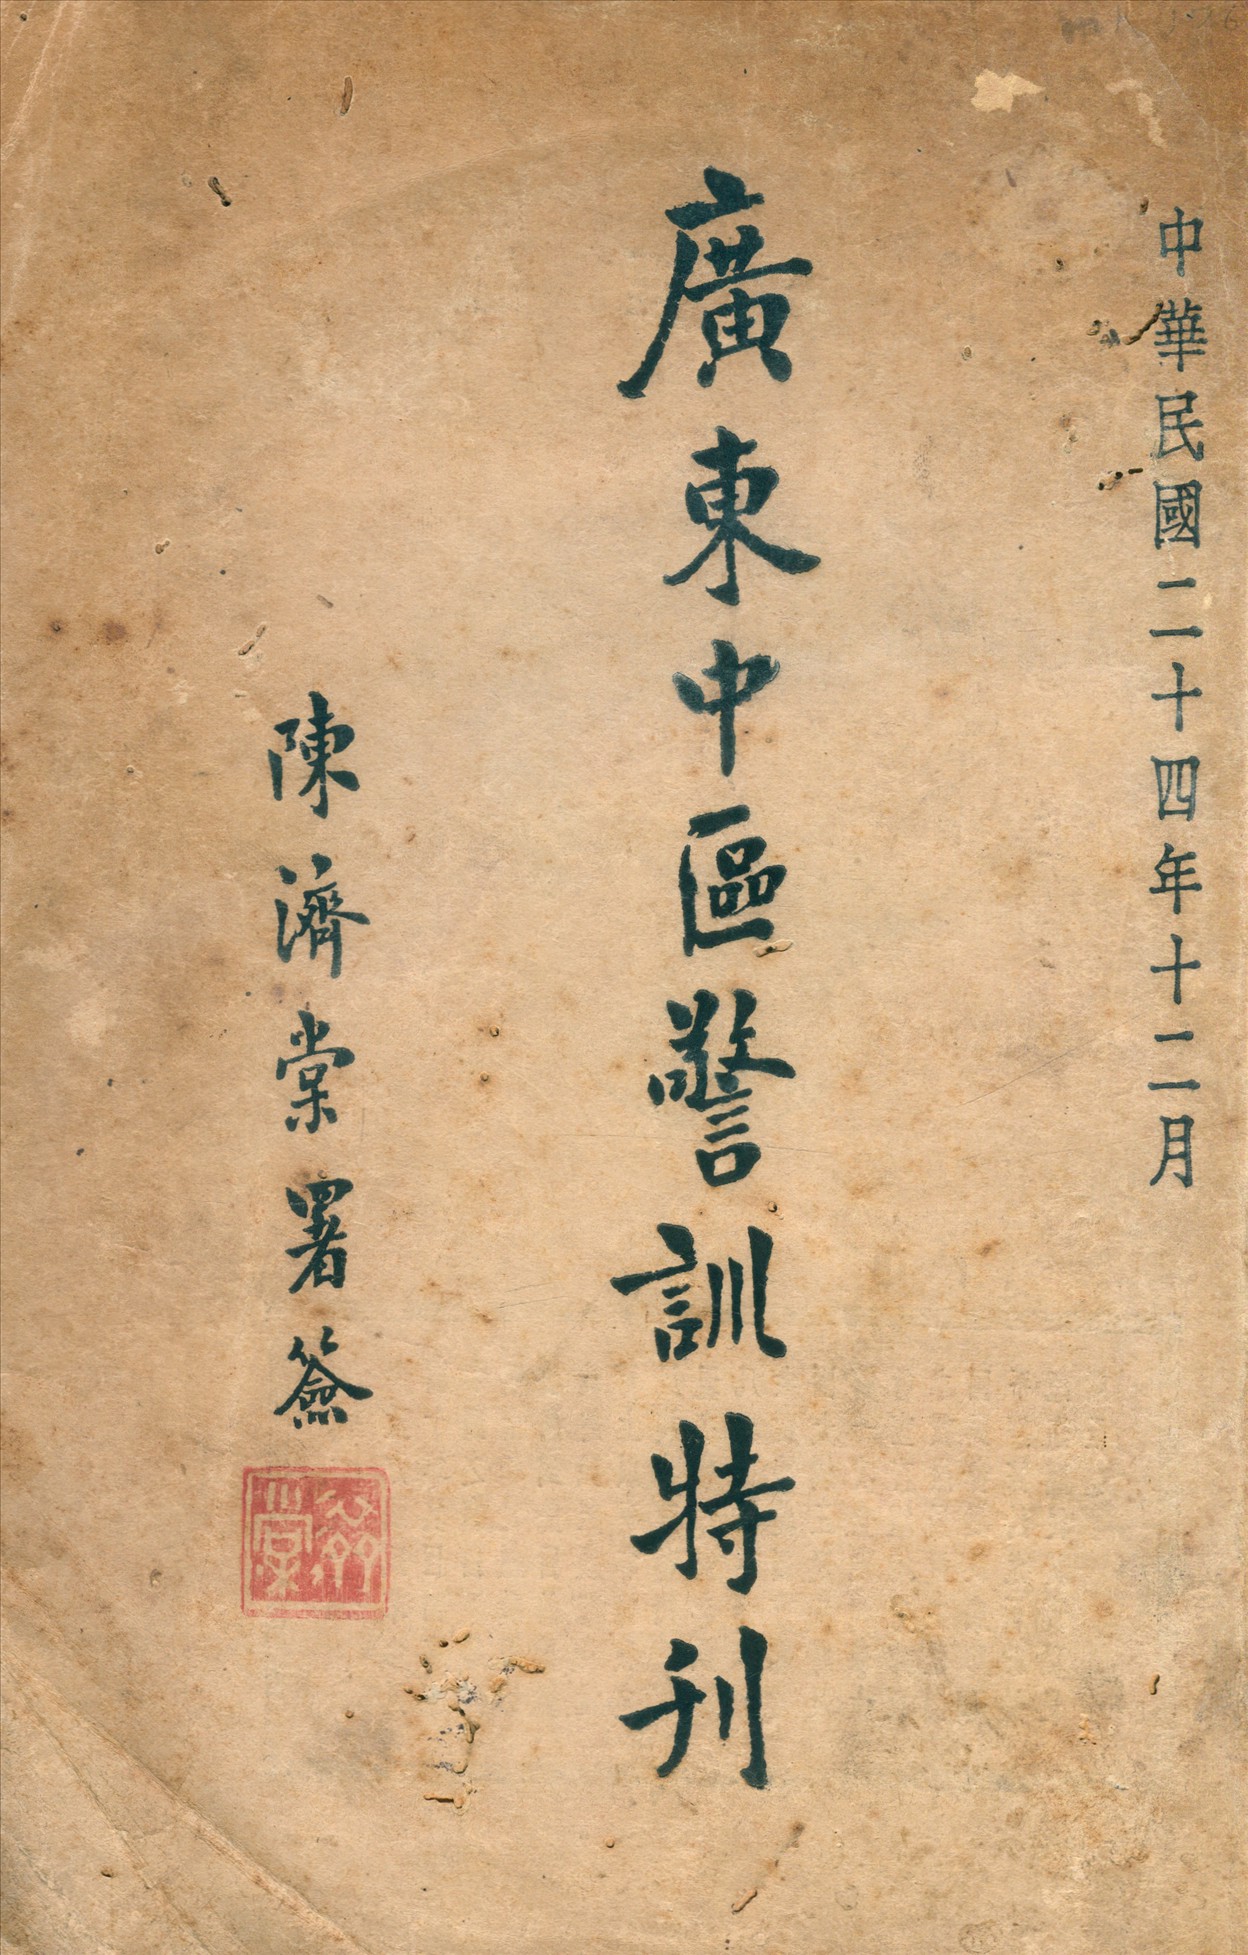 中華民國二十四年十二月
廣東中區警訓特刊
陳濟棠署簽
濟棠